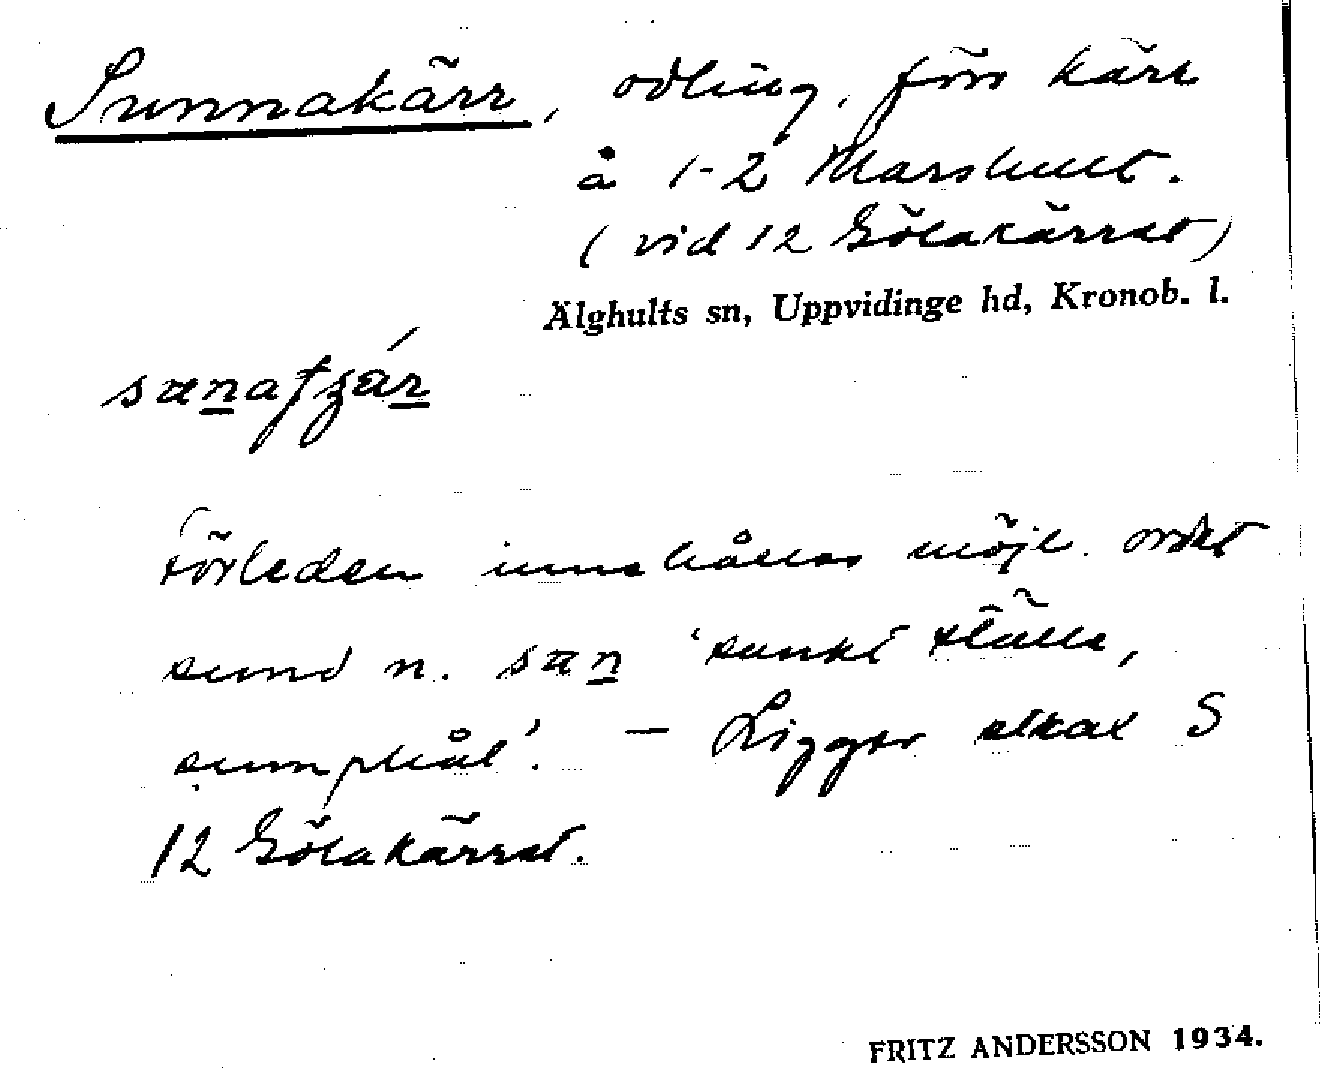 Sunnakärr, odling, förr kärr
å 1-2 Marshult.
(vid 12 Götakärret)
Älghults sn, Uppvidinge hd, Kronob. l.
Förleden innehåller möjl. ordet
sund n. san 'sankt ställe,
sumphål'. — Ligger strax S
12 Götakärret.
FRITZ ANDERSSON 1934.